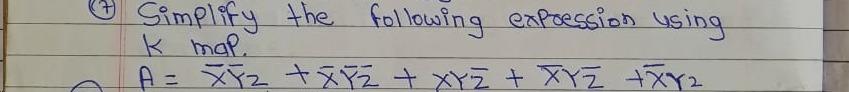 ⑦ Simplify the following expression using
K map.
A = X̅Y̅Z + X̅Y̅Z̅ + XYZ̅ + X̅YZ̅ + X̅YZ